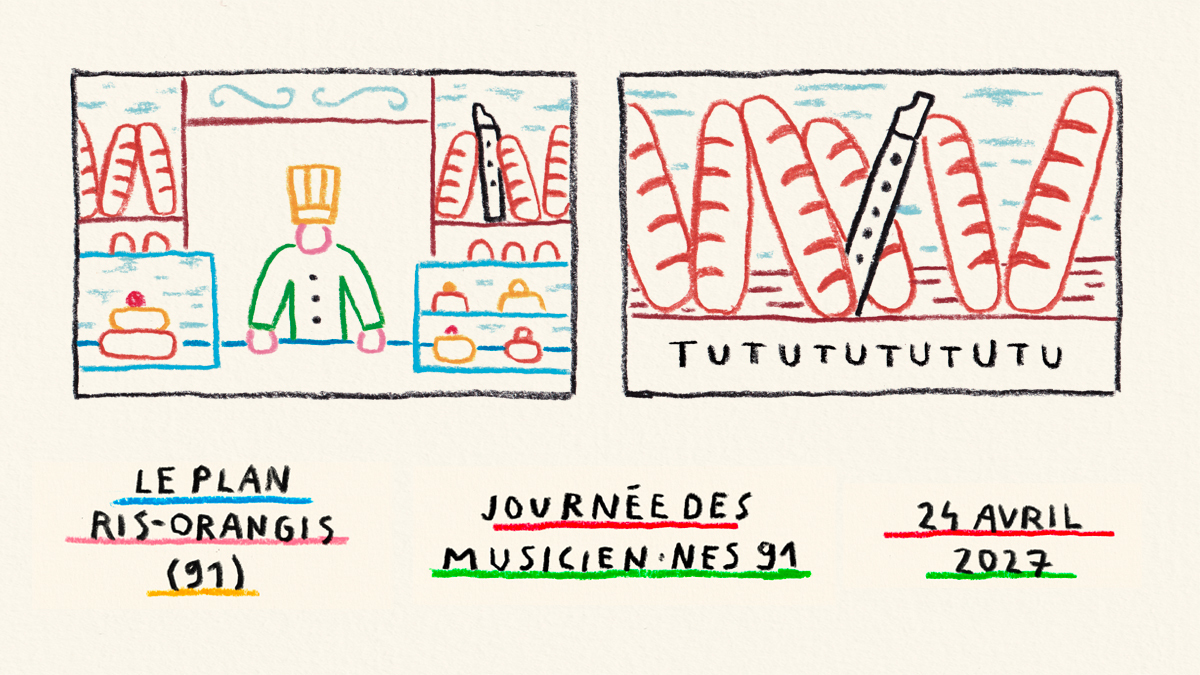 TUTUTUTUTUTUTU
LE PLAN
RIS-ORANGIS
(91)
JOURNÉE DES
MUSICIEN·NES 91
24 AVRIL
2027